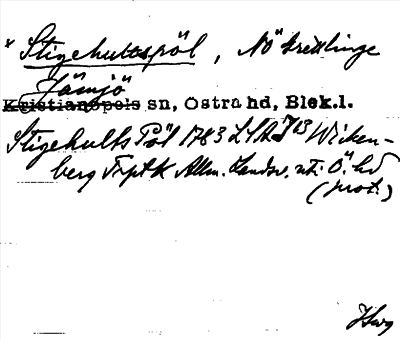 * Stigehultspöl, NÖ Krettlinge
Jämjö
Kristianopels sn, Östra hd, Blek.l.
Stigehults Pöl 1783 LSA J13 Wicken-
berg Trptk Allm. Landsv. uti Ö. hd
(prot.)